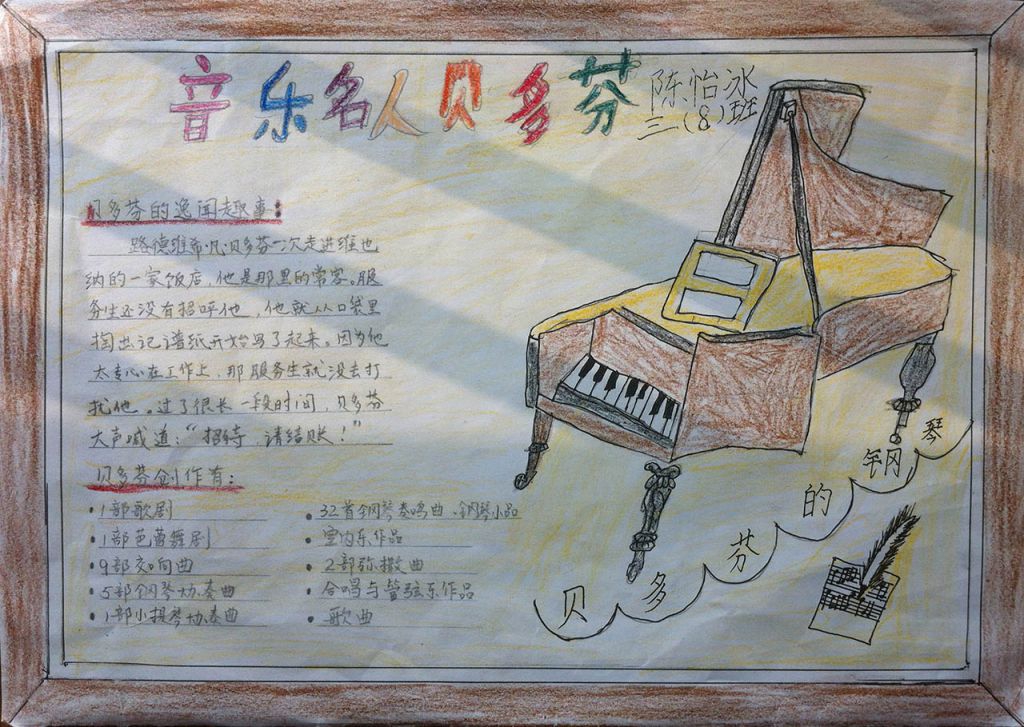 音乐名人贝多芬
陈怡冰
三(8)班
贝多芬的逸闻趣事:
路德维希·凡·贝多芬一次走进维也
纳的一家饭店,他是那里的常客。服
务生还没有招呼他,他就从口袋里
掏出记谱纸开始写了起来。因为他
太专心在工作上,那服务生就没去打
扰他。过了很长一段时间,贝多芬
大声喊道:“招待,请结账!”
贝多芬创作有:
•1部歌剧
•1部芭蕾舞剧
•9部交响曲
•5部钢琴协奏曲
•1部小提琴协奏曲
•32首钢琴奏鸣曲、钢琴小品
•室内乐作品
•2部弥撒曲
•合唱与管弦乐作品
•歌曲
贝多芬的钢琴